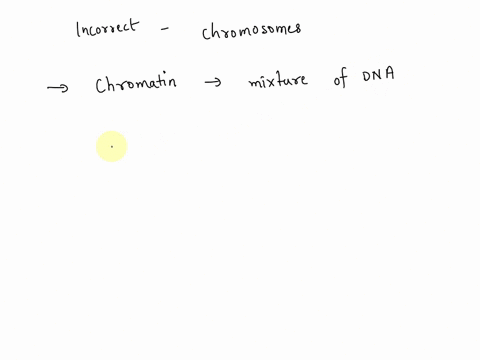 Incorrect - chromosomes
→ Chromatin → mixture of DNA